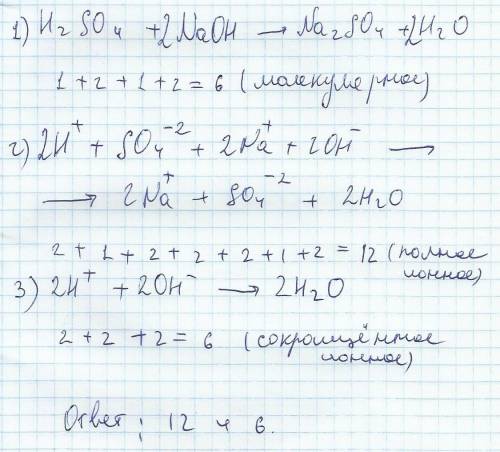 1) H₂SO₄ + 2NaOH → Na₂SO₄ + 2H₂O
1 + 2 + 1 + 2 = 6 (молекулярное)
2) 2H⁺ + SO₄⁻² + 2Na⁺ + 2OH⁻ →
→ 2Na⁺ + SO₄⁻² + 2H₂O
2 + 1 + 2 + 2 + 2 + 1 + 2 = 12 (полное
ионное)
3) 2H⁺ + 2OH⁻ → 2H₂O
2 + 2 + 2 = 6 (сокращённое
ионное)
Ответ: 12 и 6.